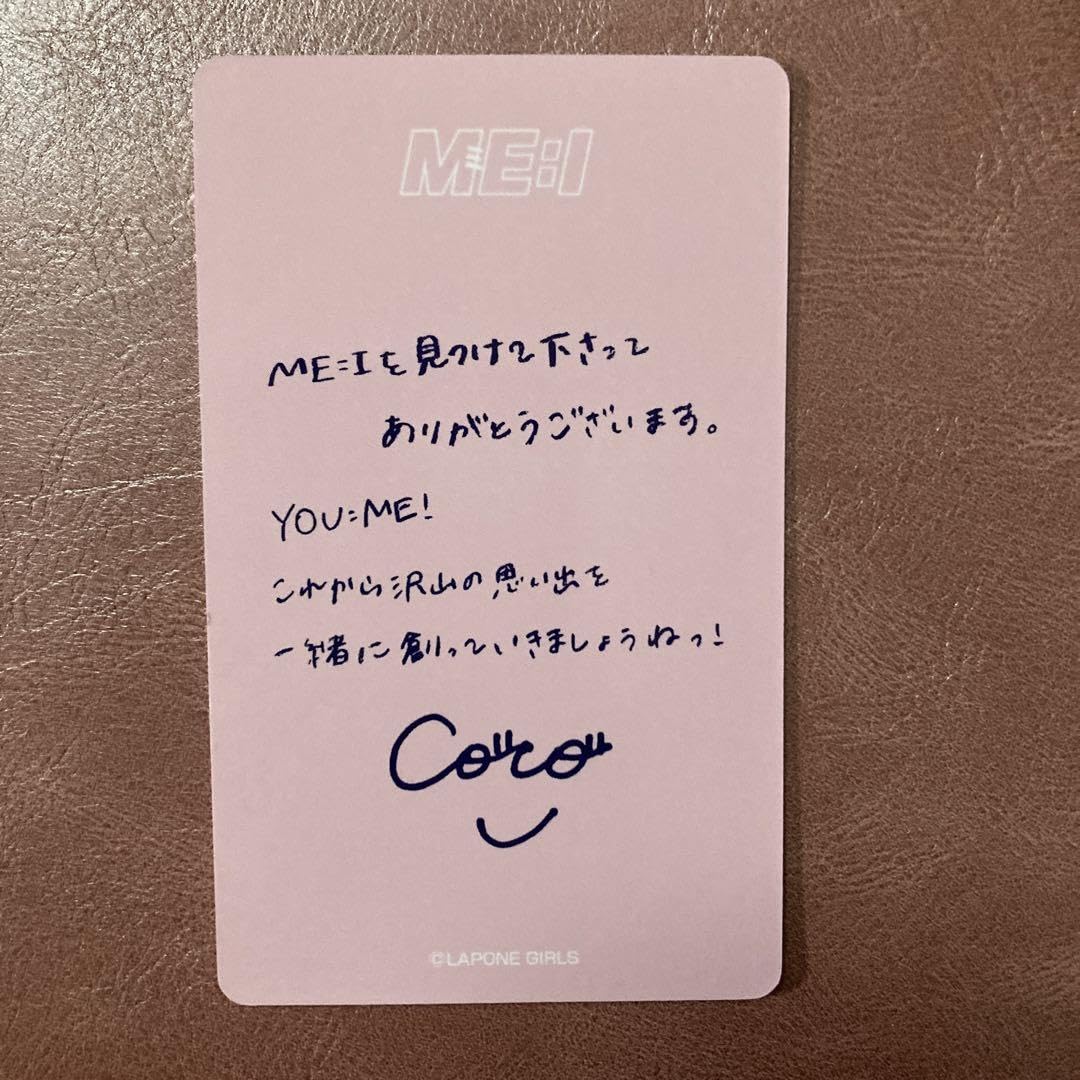 ME:I
ME=Iを見つけて下さって
ありがとうございます。
YOU=ME!
これから沢山の思い出を
一緒に創っていきましょうねっ!
Coco
©LAPONE GIRLS